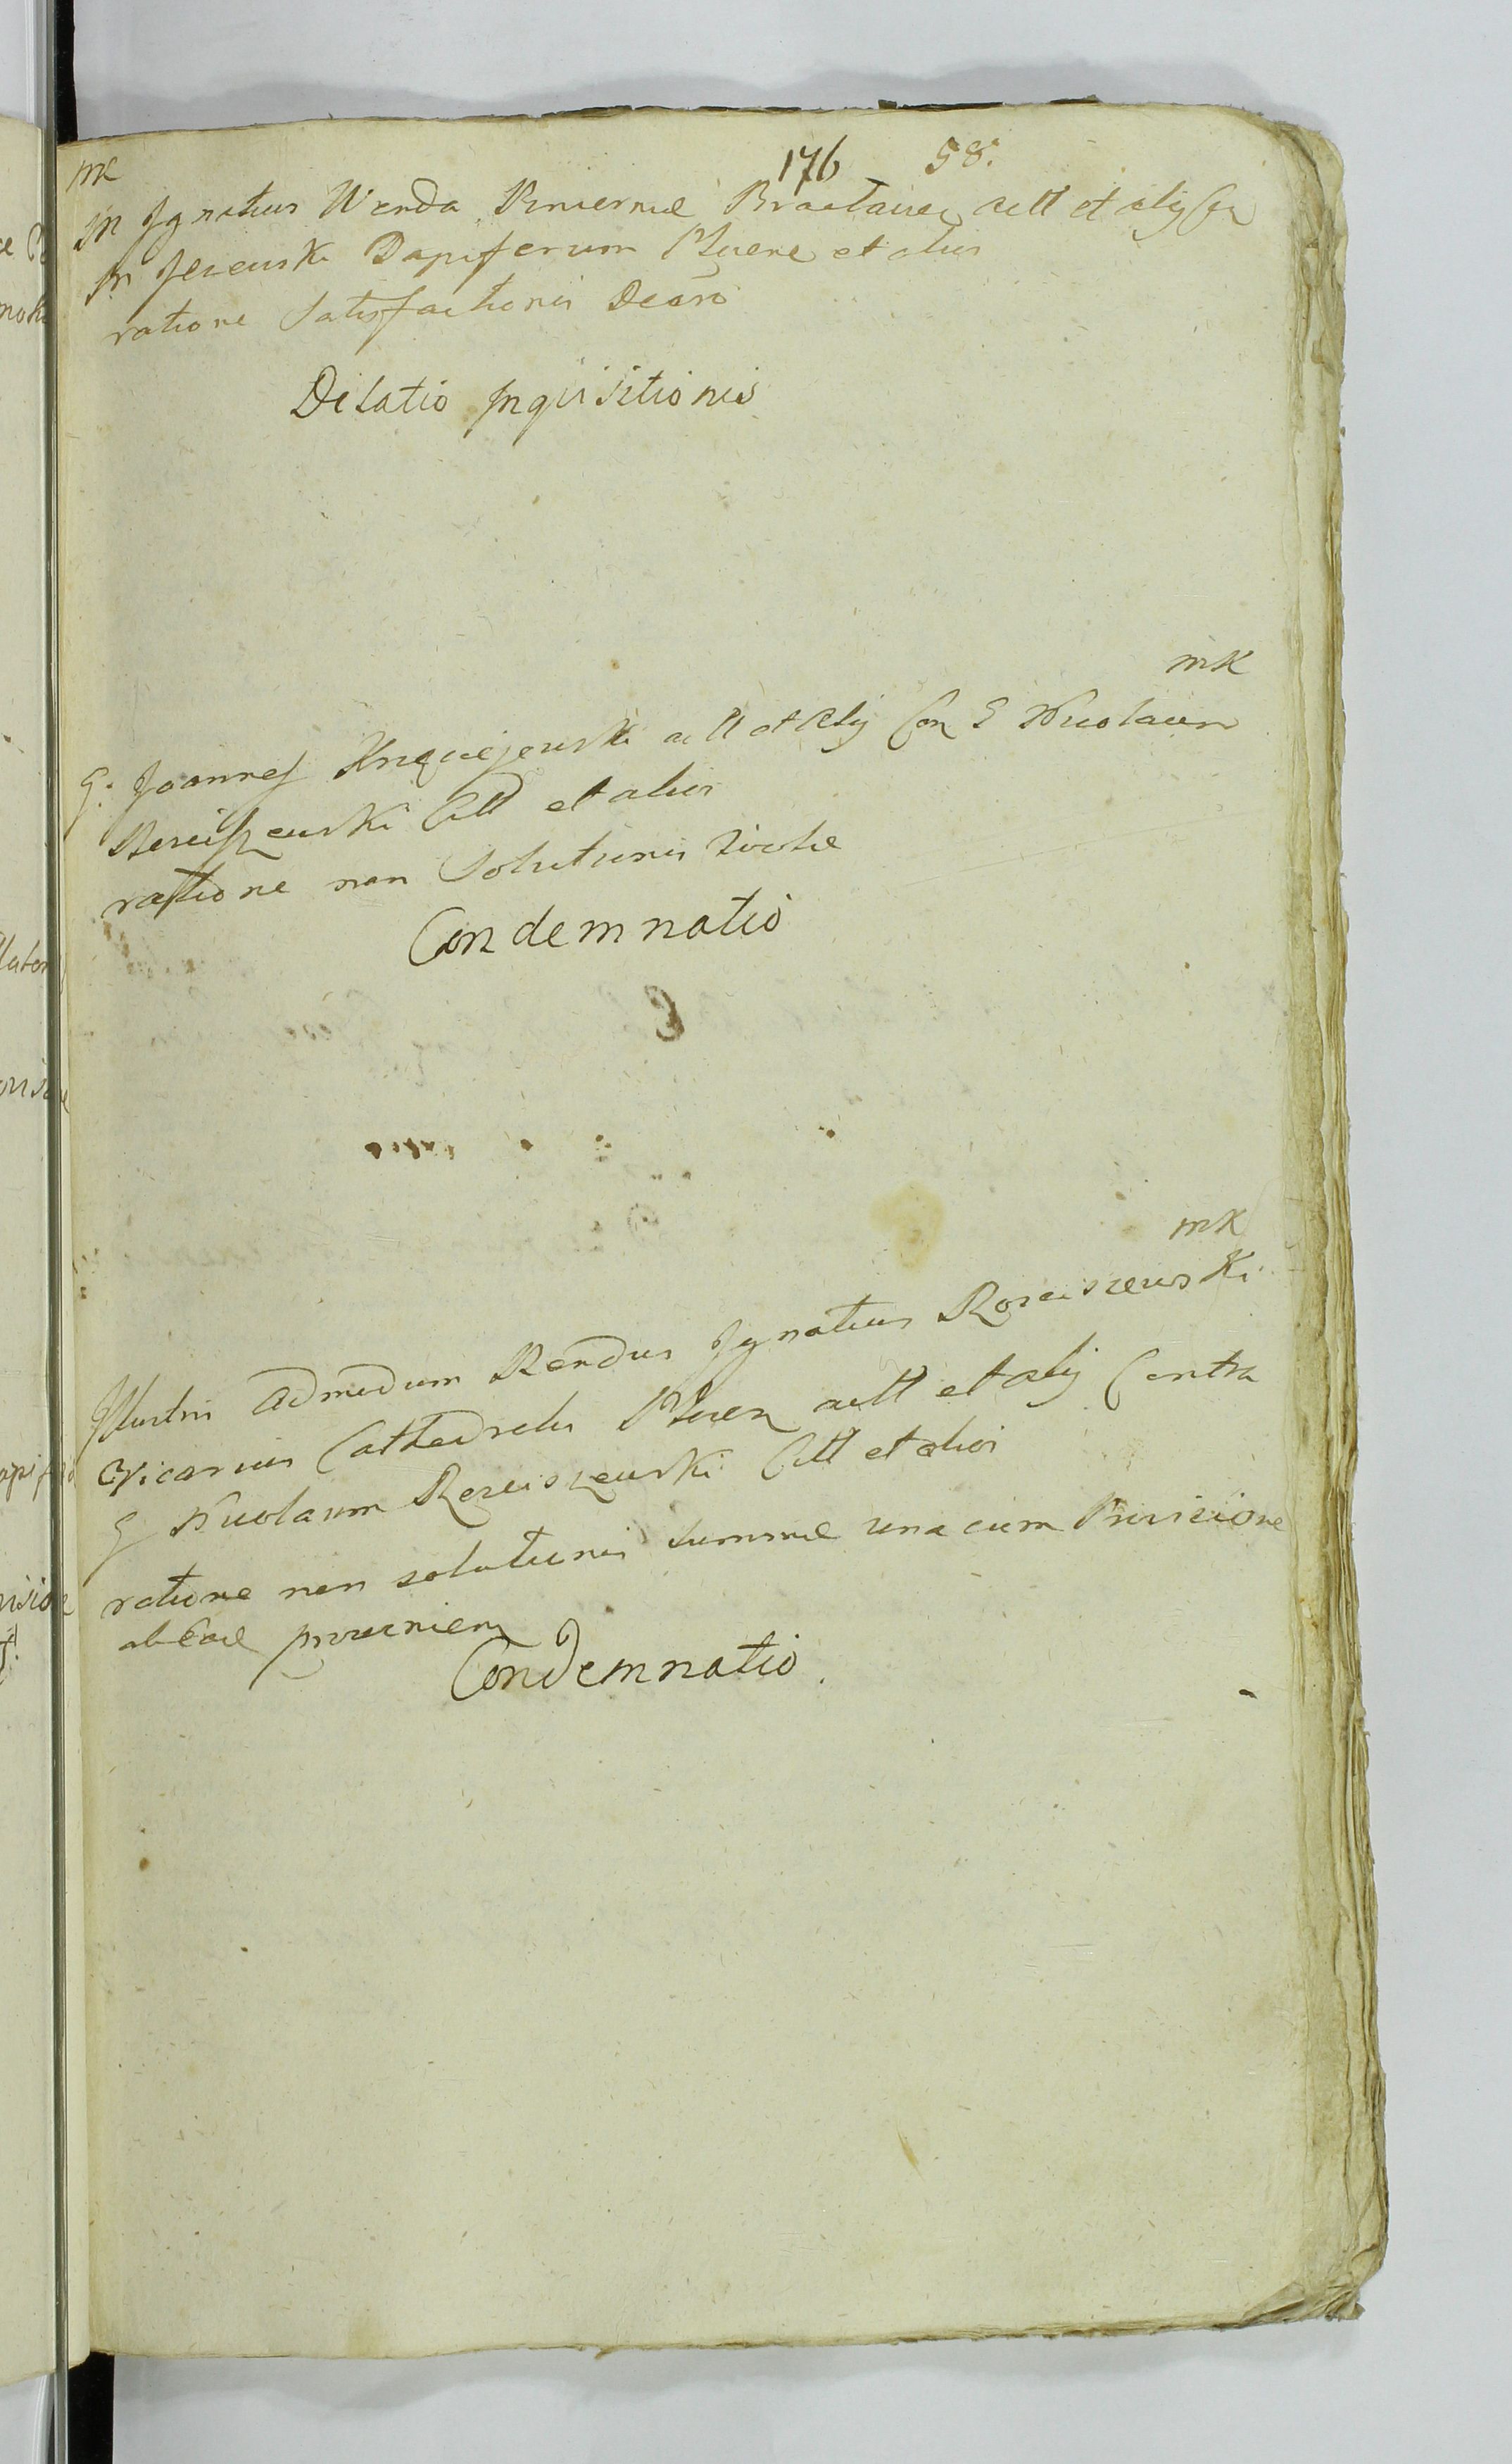 176 58.
mK
M Ignatius Wenda Pincernae Braclavien actt et alij Con
M Jezewski Dapiferum Plocen et alios
ratione Satisfactionis Decreto
Dilatio Inquisitionis
mK
G: Joannes actt et Alij Con G Nicolaum
Rosciszewski Citt et alios
ratione non Solutionis
Condemnatio
mK
Illustris admodum Rendus Ignatius Rosciszewski
Vicarius Cathedralis Plocen actt et alij Contra
G Nicolaum Rosciszewski Citt et alios
ratione non solutionis summae una cum Provisione
ab Eae provenien
Condemnatio.